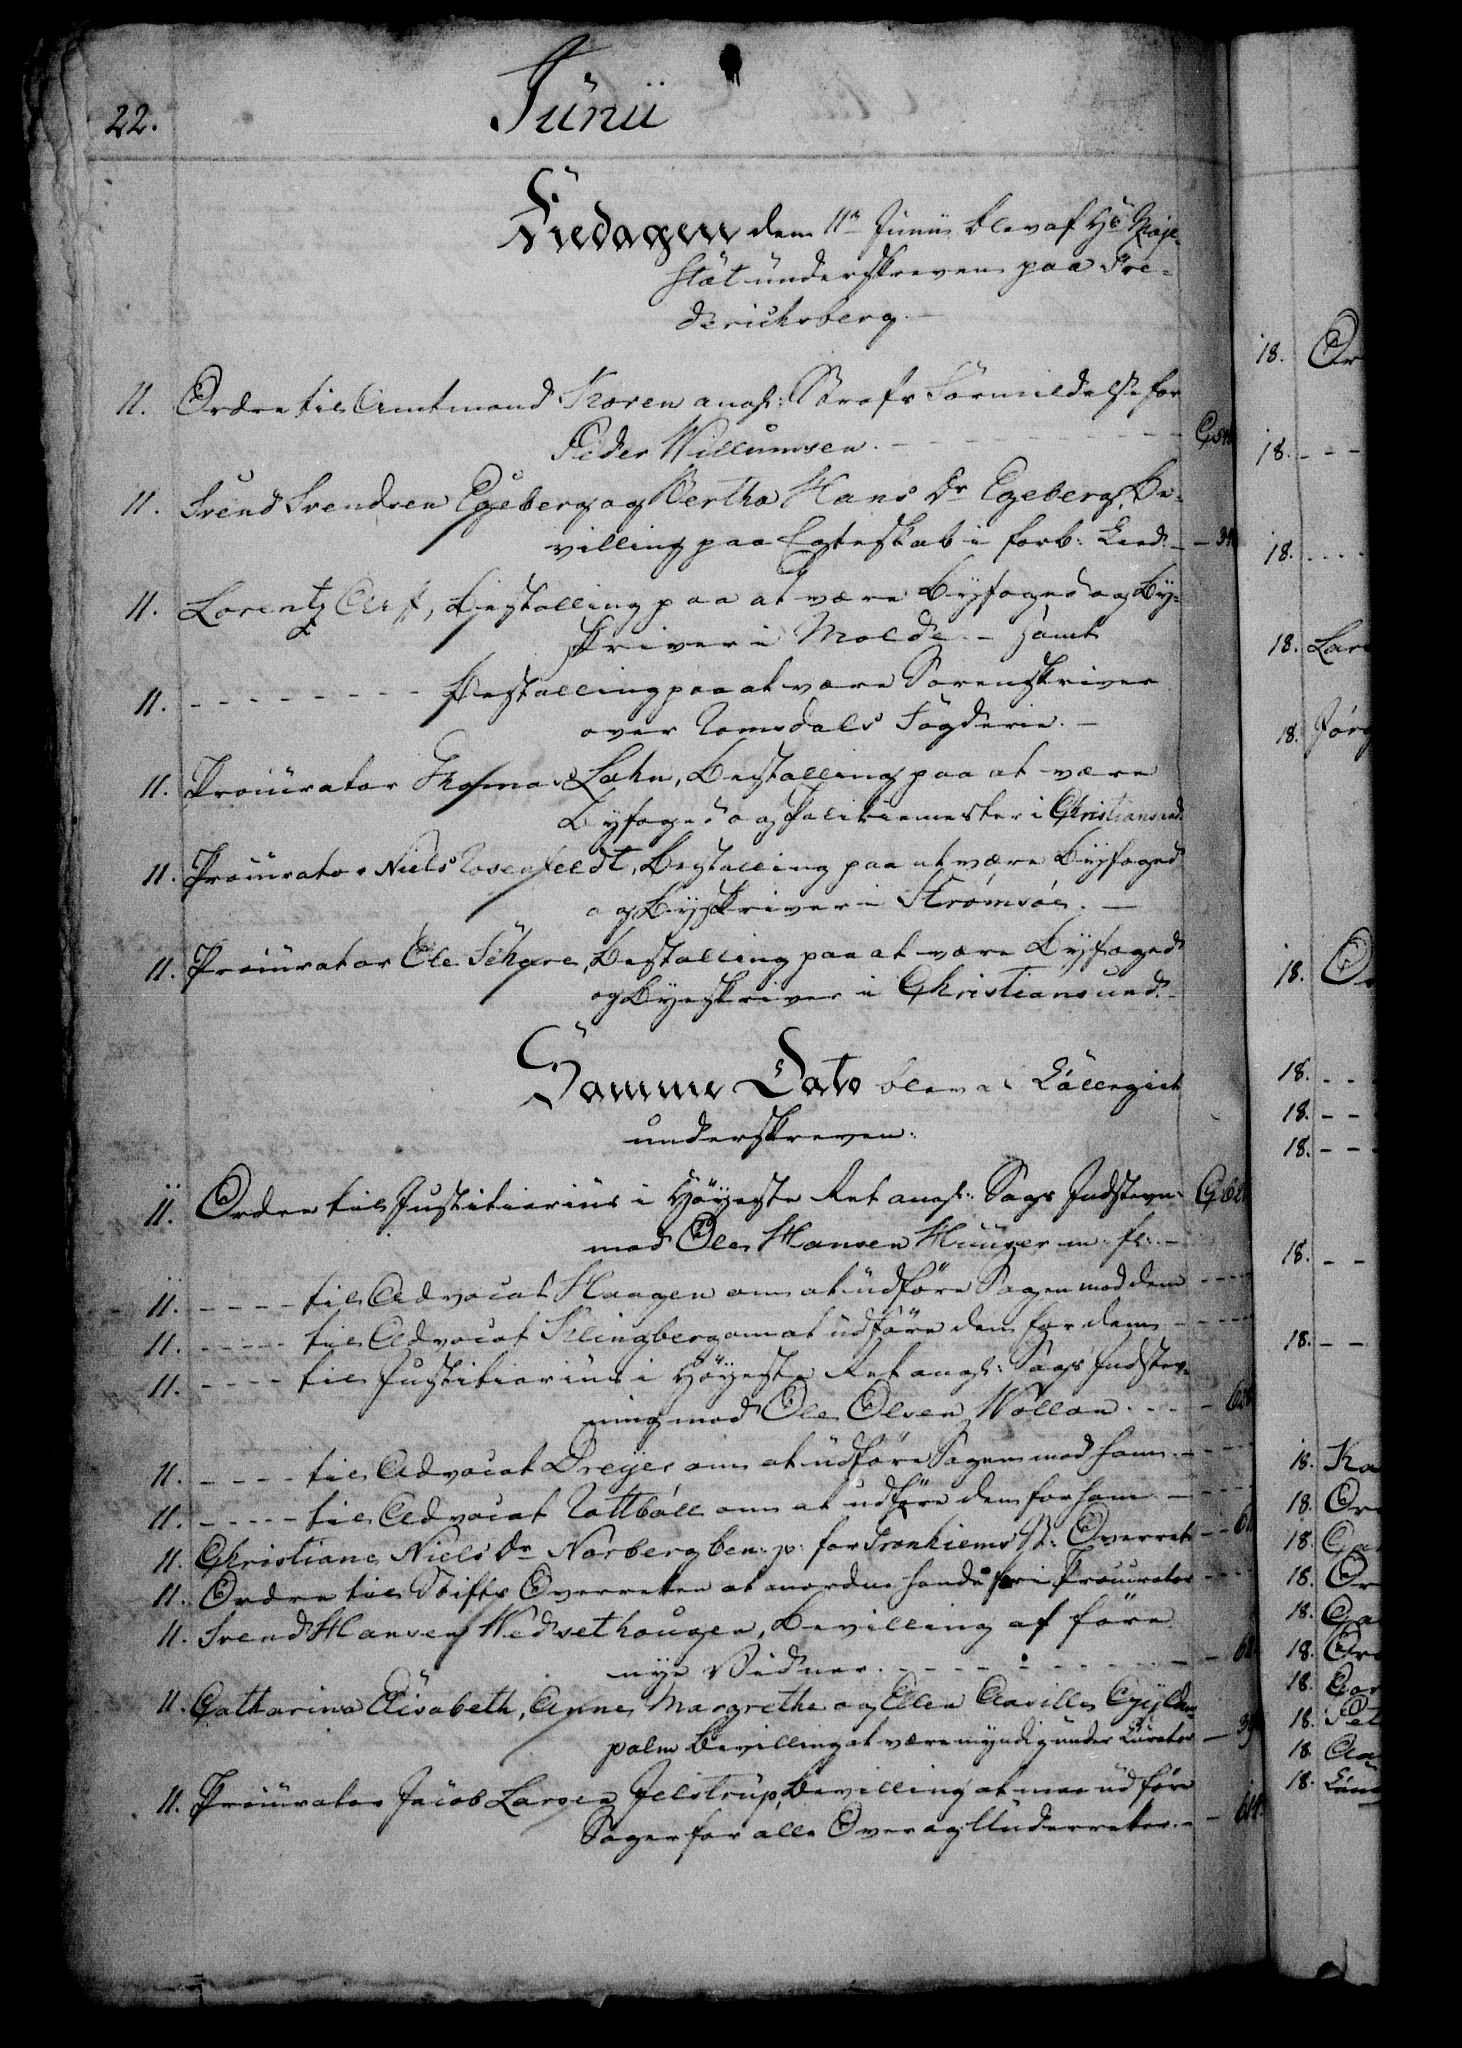 22.
Junii
Fredagen dem 11te Junii blev af Hs Maje-
stæt underskreven paa Fre-
derichsberg.
11. Ordre til Amtmand Koren angl: Strafs Formildelse for
Peder Willumsen.
11. Svend Svendsen Egeberg og Bertha Hans Dr Egeberg, Be-
villing paa Egteskab i forb: Leed.
11. Lorentz, Bestalling paa at være Byfoged og By-
skriver i Molde. - samt
11. - - - - - - - Bestalling paa at være Sorenskriver
over Romsdals Fögderie. -
11. Procurator Thomas Lahn, Bestalling paa at være
Byfoged og Politiemester i Christiansund
11. Procurator Niels Rosenfeldt, Bestalling paa at være Byfoged
og Byskriver i Strømsöe. -
11. Procurator Ole, Bestalling paa at være Byfoged
og Byeskriver i Christiansund.
Samme Dato blev i Collegiet
underskreven:
11. Ordre til Justitiarius i Höyeste Ret angl: Sags Indstevn:
mod Ole Hansen Huuser m: fl: -
11. - - - - til Advocat Haagen om at udföre Sagen mod dem
11. - - - - til Advocat Klingberg om at udföre den for dem
11. - - - - til Justitiarius i Höyeste Ret angl: Sags Indstev-
ning mod Ole Olsen Wollan
11. - - - - til Advocat Dreyer om at udföre Sagen mod ham
11. - - - - til Advocat Rottböll om at udföre den for ham
11. Christiane Niels Dr Norberg ben: p: for Tronhiems St: Overret
11. Ordre til Stifts Overretten at anordne hende fri Procurator
11. Svend Hansen Wedsethougen, Bevilling at före
nye Vidner.
11. Catharina Elisabeth, Anne Margrethe og Ellen Gylden-
palm Bevilling at være myndig under Curator
11. Procurator Jacob Larsen Jelstrup, Bevilling at maae udföre
Sager for alle Over og Underretter.
18. Or
18. - - -
18. - - - -
18.
18. Jörg
18.
18. - -
18. - -
18. - - -
18. - -
18. - -
18. Ka
18. Or
18.
18. Or
18.
18. Or
18.
18. Pet
18.
18.